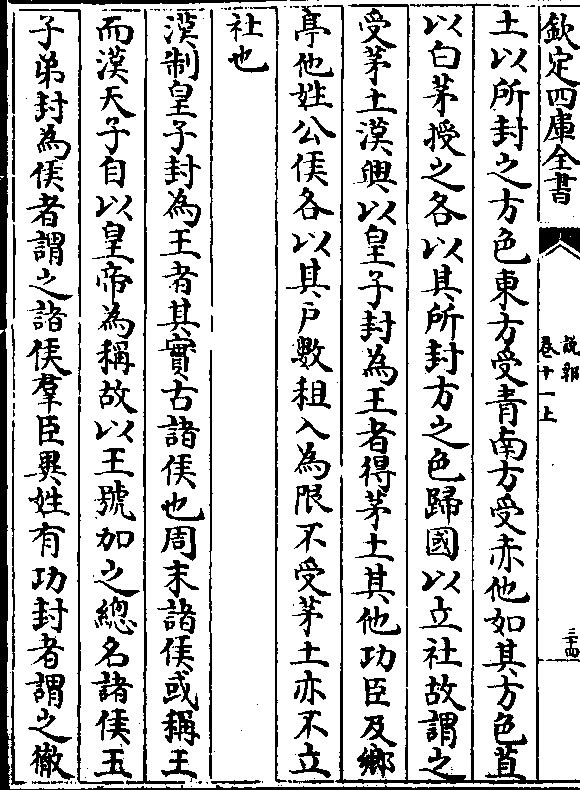 欽定四庫全書
說郛
卷十一上
三十四
土以所封之方色東方受青南方受赤他如其方色苴
以白茅授之各以其所封方之色歸國以立社故謂之
受茅土漢興以皇子封為王者得茅土其他功臣及鄉
亭他姓公侯各以其戶數租入為限不受茅土亦不立
社也
漢制皇子封為王者其實古諸侯也周末諸侯或稱王
而漢天子自以皇帝為稱故以王號加之總名諸侯王
子弟封為侯者謂之諸侯羣臣異姓有功封者謂之徹